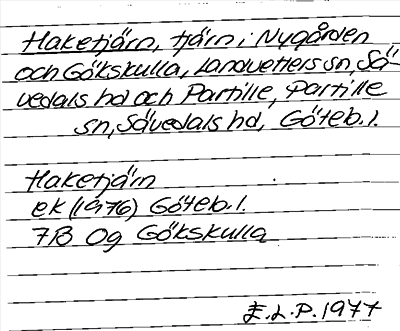 Haketjärn, tjärn i Nygården
och Gökskulla, Landvetters sn, Sä-
vedals hd och Partille, Partille
sn, Sävedals hd, Göteb. l.
Haketjärn
ek (1976) Göteb. l.
7B 0g Gökskulla
E.L.P. 1977